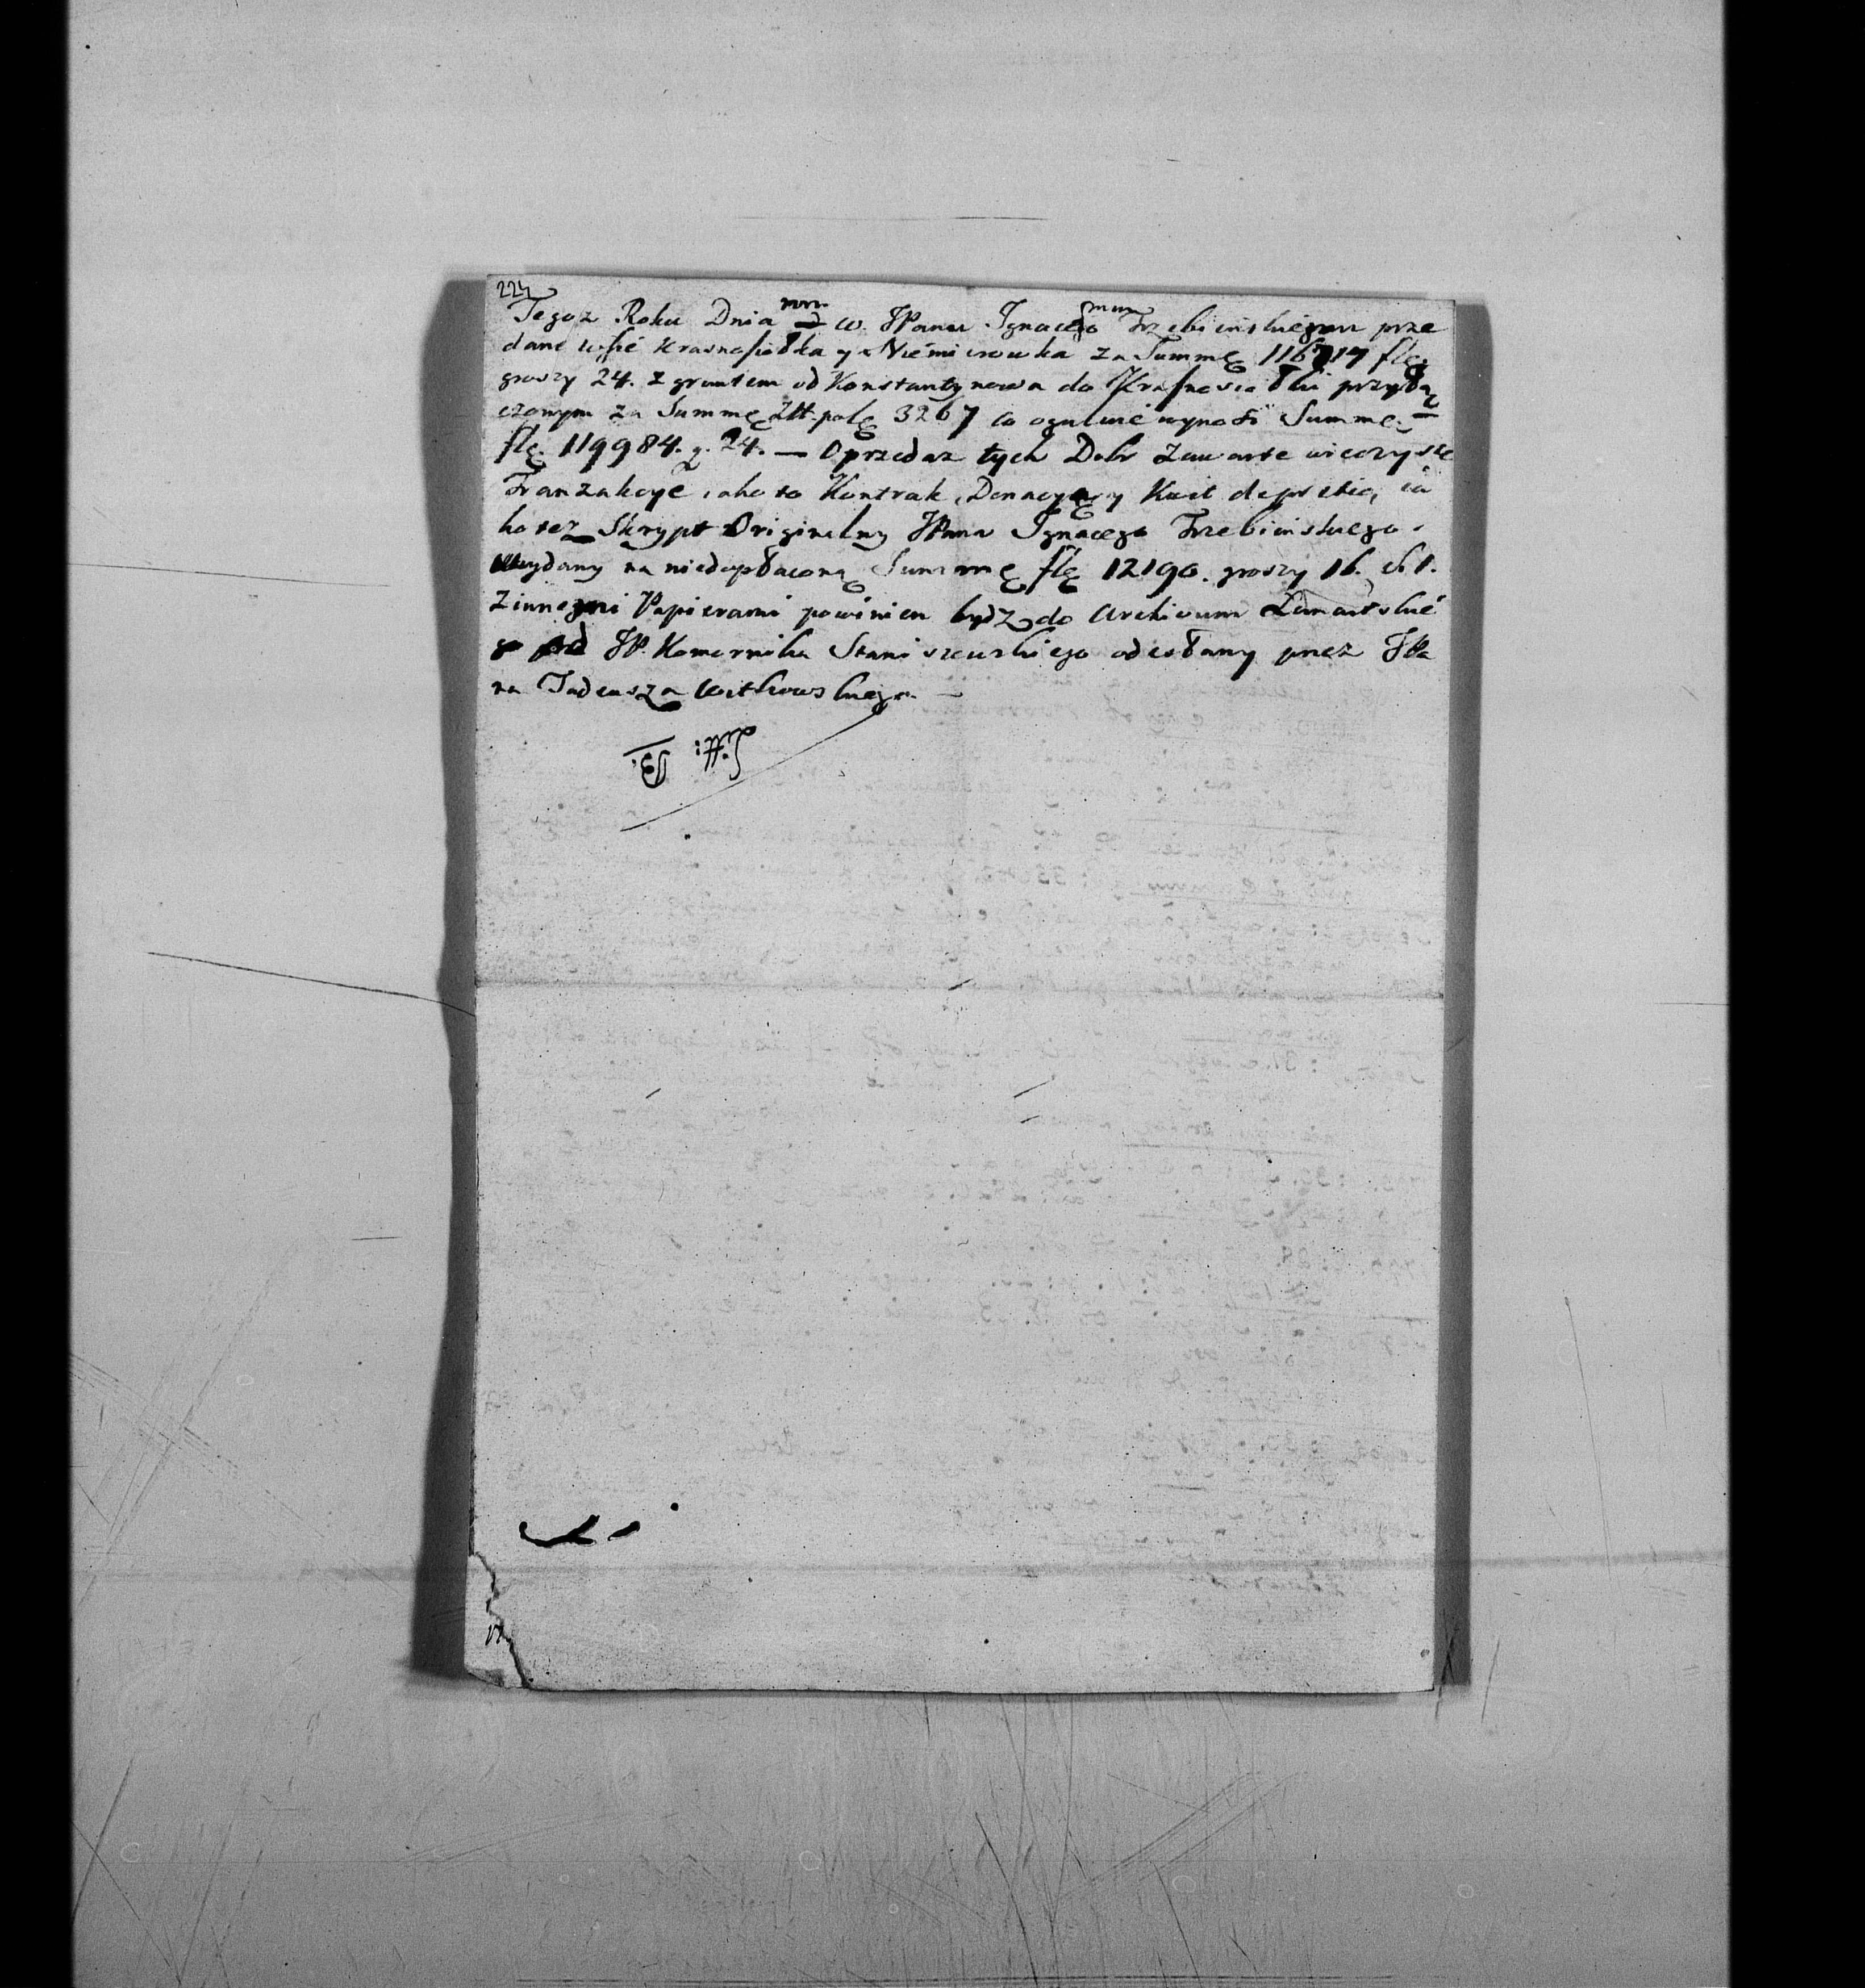 224
Tegoz Roku Dnia w. JPanu Ignacemu Trzebinskiemu prze
dane wsie Krasnosiołka y Niemirowka za Summę 116717 flę.
groszy 24. z gruntem od Konstantynowa do Krasnosiołki przyłą
czonym za Summę Złł. polę 3267 co ogulnie wynosi Summę
flę. 119984. g. 24. — O przedaz tych Dobr zawarte wieczyste
Tranzakcye iako to Kontrakt, Donacya y Kwit ia
ko tez Skrypt Originalny JPana Ignacego Trzebinskiego
wydany na niedopłaconą Summę flę 12190. groszy 16.
z innemi Papierami powinien bydz do Archivum
JP. Komornika Staniszewskiego odesłany przez JPa
na Tadeusza Witkowskiego. —
Litt: B.